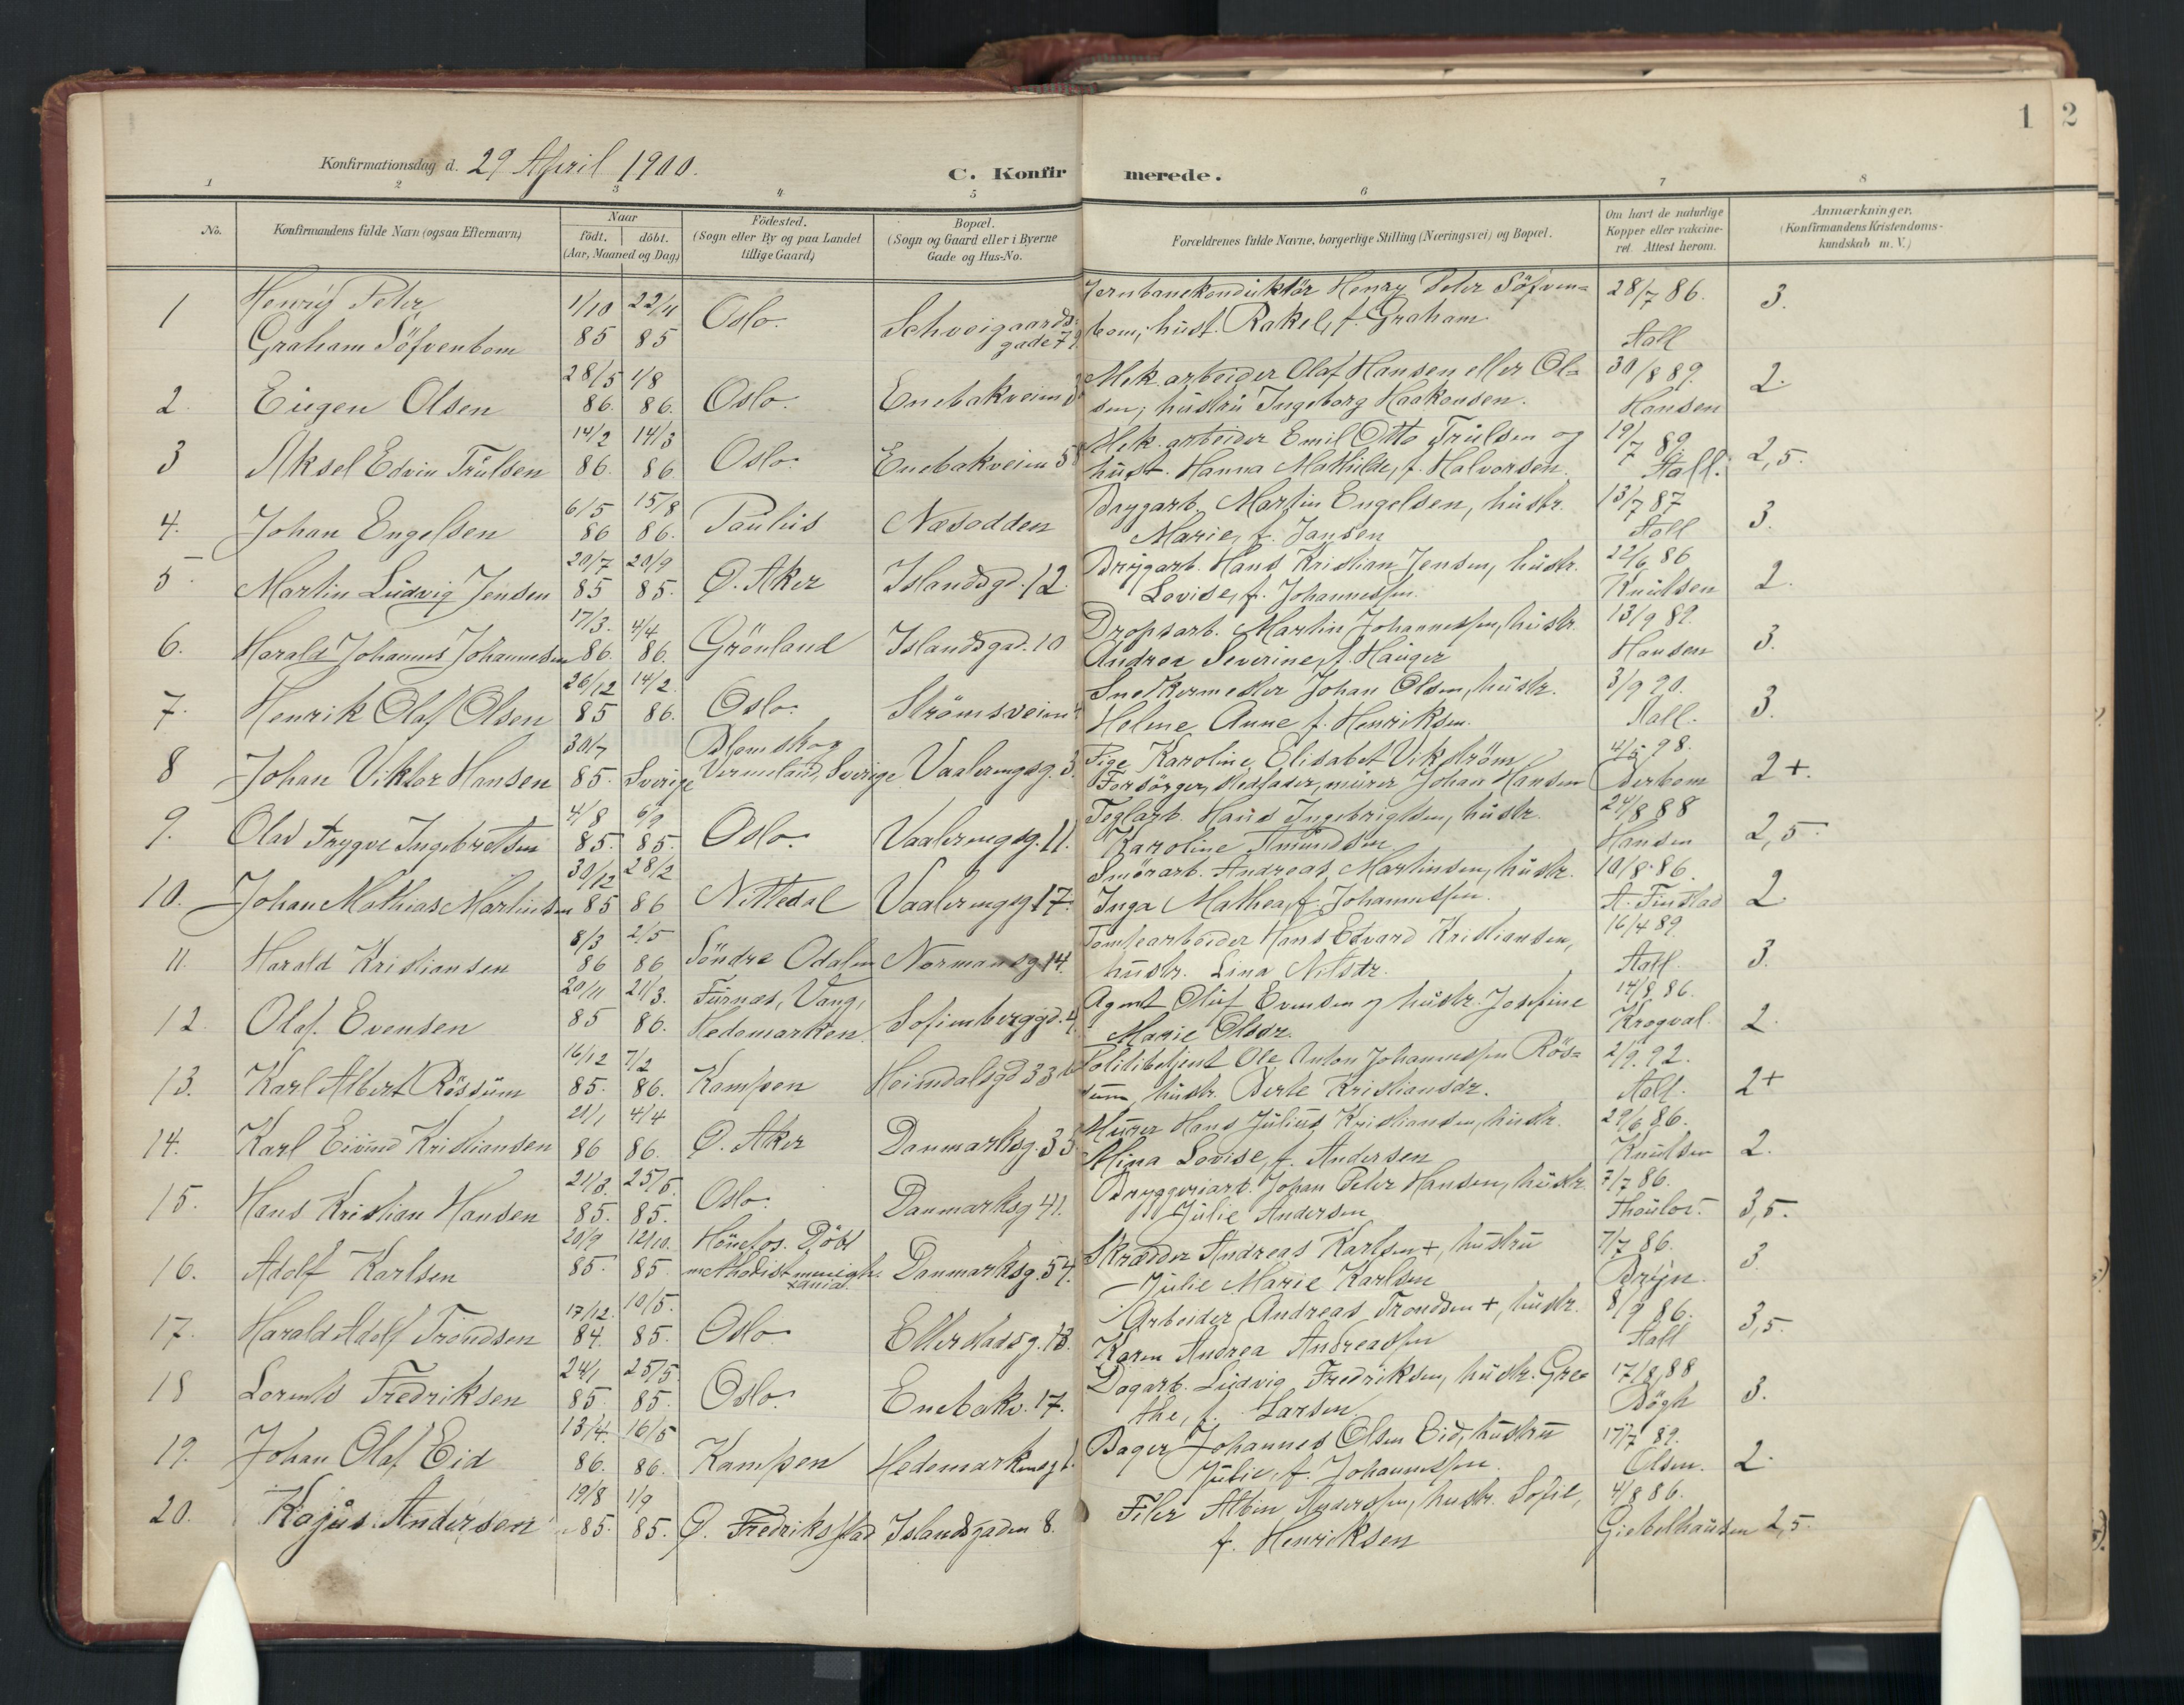 1 2
Konfirmationsdag d. 29 April 1900.
C. Konfirmerede.
1 2 3 4 5 6 7 8
No.
Konfirmandens fulde Navn (ogsaa Efternavn)
Naar
födt. döbt.
(Aar, Maaned og Dag)
Födested.
(Sogn eller By og paa Landet
tillige Gaard)
Bopæl.
(Sogn og Gaard eller i Byerne
Gade og Hus-No.
Forældrenes fulde Navne, borgerlige Stilling (Næringsvei) og Bopæl.
Om havt de naturlige
Kopper eller vakcine-
ret. Attest herom.
Anmærkninger.
(Konfirmandens Kristendoms-
kundskab m. V.)
Henry Peter 1/10 22/11 Jernbanekonduktör Henry Peter Söfven= 28/7 86.
1 Graham Söfvenbom 85 85 Oslo. Schweigaards gade 79 bom; hust. Rakel, f. Graham Aall 3.
28/5 1/8 Mek. arbeider Olaf Hansen eller Ol= 30/8 89.
2. Eugen Olsen 86. 86. Oslo. Enebakveien sen; hustru Ingeborg Haakonsen. Hansen 2.
14/2 14/3 Mek. arbeider Emil Otto Trulsen og 19/7 89.
3 Aksel Edvin Trulsen 86. 86 Oslo. Enebakveien hust. Hanna Mathilde, f. Halvorsen. Aall. 2,5.
6/5 15/8 Brygarb. Martin Engelsen, hustr. 13/7 87
4. Johan Engelsen 86 86. Paulus Næsodden Marie, f. Jansen Aall 3.
20/7 20/9 Brygarb. Hans Kristian Jensen, hustr. 22/6 86
5. Martin Ludvig Jensen 85 85. Ö. Aker Islandsgd. 12 Lovise, f. Johannessen. Knudsen 2.
17/3. 4/4 Dropsarb. Martin Johannessen, hustr. 13/9 89.
6. Harald Johannes Johannesen 86. 86. Grönland Islandsgad. 10 Andrea Severine, f. Hauger Hansen 3.
26/12 14/2. Snedkermester Johan Olsen, hustr. 3/9 90.
7. Henrik Olaf Olsen 85 86. Oslo. Strömsveien Helene Anne f. Henriksen. Aall. 3.
30/7 Blomskog Pige Karoline Elisabet Vikström 4/5 98.
8 Johan Viktor Hansen 85. Sverige Vermeland, Sverige Vaalerengsg. 3. Forsörger, stedfader, murer Johan Hansen 2+.
4/8 6/9 Teglarb. Hans Ingebrigtsen, hustr. 24/8 88
9. Olav Trygve Ingebretsen 85. 85. Oslo. Vaalerengsg. 11. Karoline Amundsen Hansen 2,5.
30/12 28/2 Smörarb. Andreas Martinsen, hustr. 10/8 86.
10. Johan Mathias Martinsen 85 86 Nittedal Vaalerengsg. 17. Inga Mathea, f. Johannessen. A. Finstad 2.
8/3 2/5 Tomtearbeider Hans Edvard Kristiansen, 16/4 89.
11. Harald Kristiansen 86 86 Söndre Odalen Normansg. 14. hustr. Lina Nilsdr. Aall 3.
20/11 21/3. Furnæs, Vang, Agent Oluf Evensen og hustr. Josefine 14/8 86.
12. Olaf Evensen 85 86. Hedemarken. Sofienberggd. Marie Olsdr. Krogval. 2.
16/12 7/2 Politibetjent Ole Anton Johannessen Rös= 2/9. 92.
13. Karl Albert Rössum 85. 86. Kampen Heimdalsgd 33 sum, hustr. Berte Kristiansdr. Aall. 2+
21/1 4/4 Murer Hans Julius Kristiansen, hustr. 29/6 86.
14. Karl Eivind Kristiansen 86 86. Ö. Aker Danmarksg. 33 Mina Lovise, f. Andersen Knudsen 2.
21/3. 25/5. Bryggeriarb. Johan Peter Hansen, hustr. 7/7 86.
15. Hans Kristian Hansen 85. 85. Oslo. Danmarksg 41. Julie Andersen Thaulov. 3,5.
20/9 12/10. Hönefos. Döbt Skrædder Andreas Karlsen +, hustru 7/7 86.
16. Adolf Karlsen 85. 85 methodistmenigh. Xania. Danmarksg. 54. Julie Marie Karlsen Bryn. 3.
17/12. 10/5. Arbeider Andreas Trondsen +, hustr. 8/9 86.
17. Harald Adolf Trondsen 84. 85. Oslo Ellerstadsg. 18. Karen Andrea Andreassen Aall 3,5.
24/1 25/5. Dagarb. Ludvig Fredriksen, hustr. Gre= 17/8 88
18 Lorents Fredriksen 85. 85. Oslo. Enebakv. 17. the, f. Larsen. Bögh 3.
13/4. 16/5 Bager Johannes Olsen Eid, hustru 17/7 89.
19. Johan Olaf Eid 86. 86. Kampen Hedemarkensg. Julie, f. Johannessen. Olsen. 2.
19/8 1/9 Filer Albin Anderssen, hustr. Sofie, 4/8 86.
20. Kajus Andersen 85. 85. Ö. Fredrikstad Islandsgaden 8. f. Henriksen Giebelhausen 2,5.